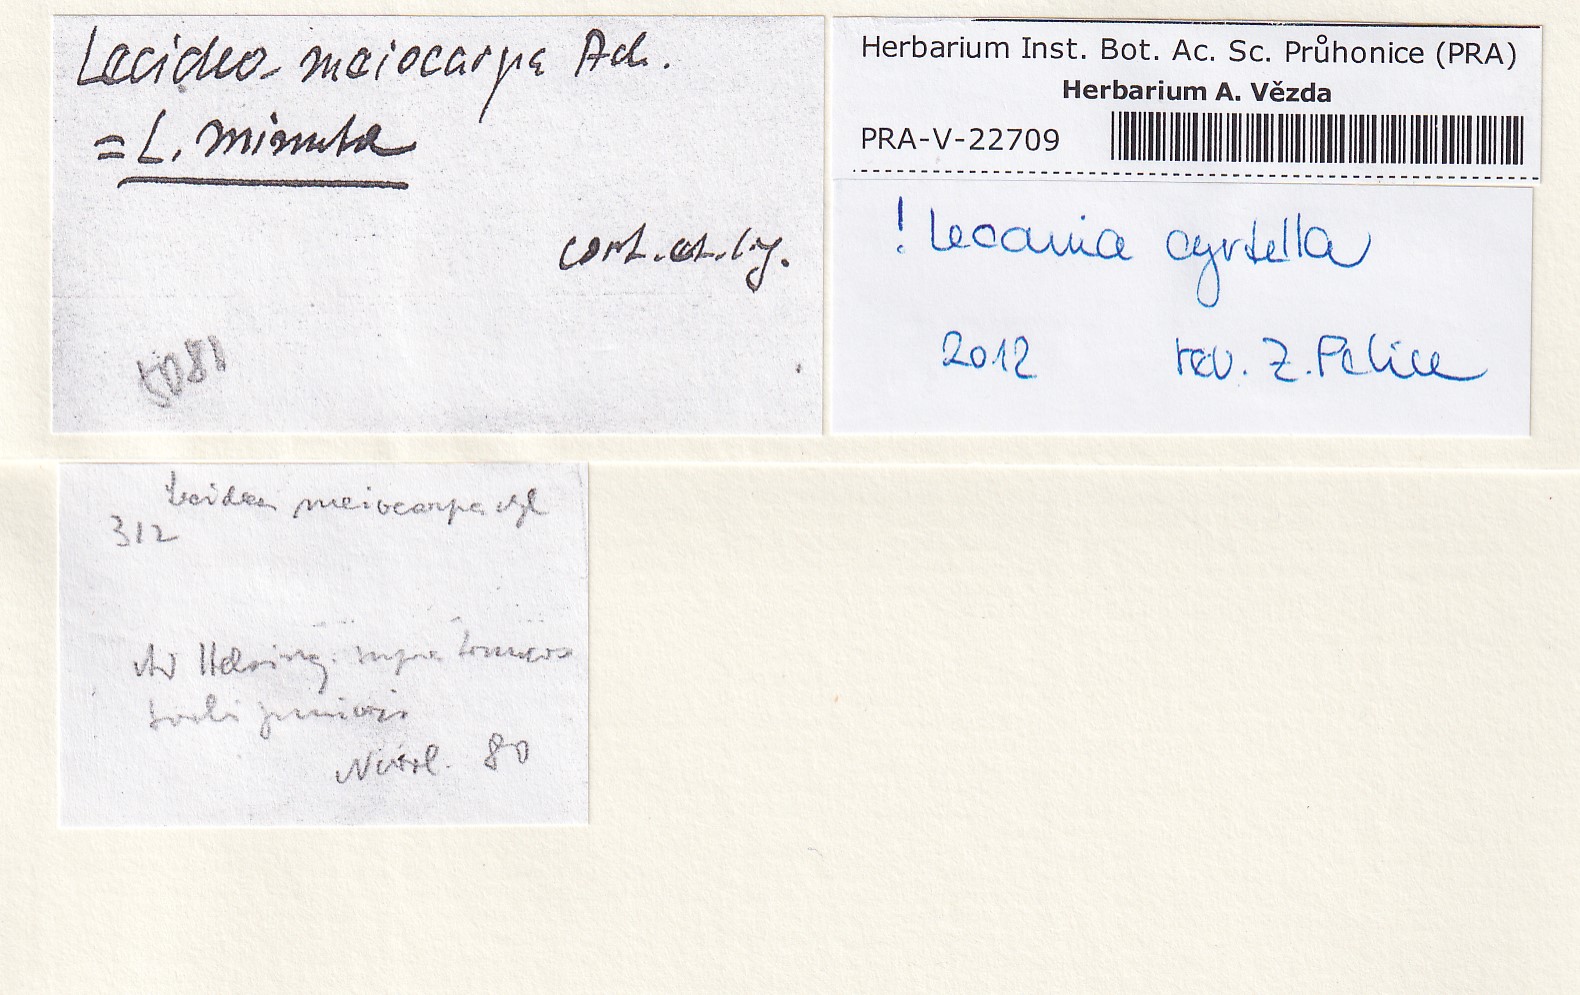 Lecidea meiocarpa Ach.
= L. minuta
cort. et. lg.
5081
Herbarium Inst. Bot. Ac. Sc. Průhonice (PRA)
Herbarium A. Vězda
PRA-V-22709
! Lecania cyrtella
2012 rev. Z. Palice
Lecidea meiocarpa Nyl
312
Ad Helsing. supra
80